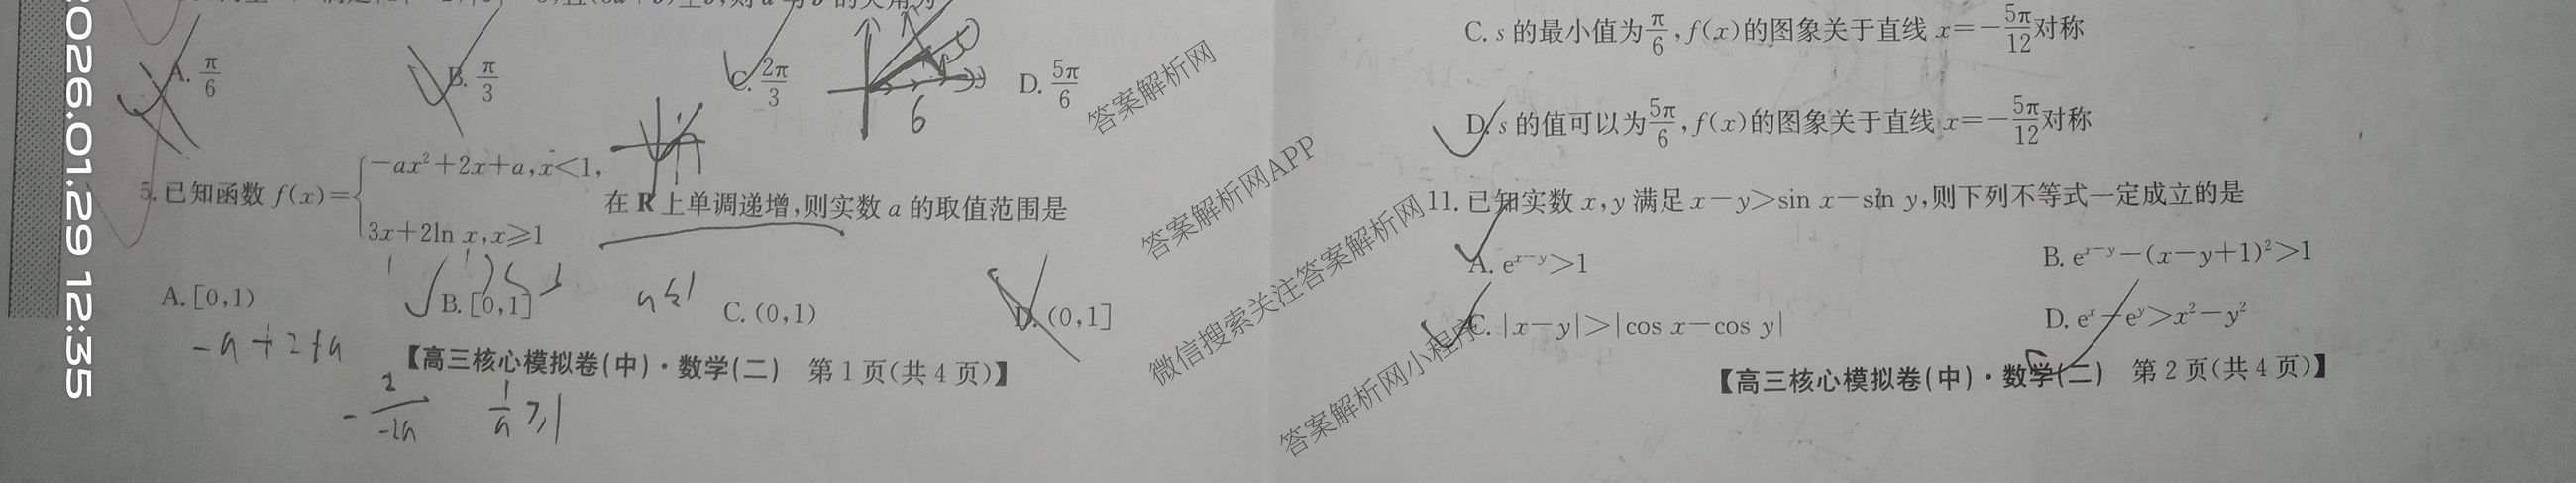 2026.01.29 12:35
A. π/6 B. π/3 C. 2π/3 D. 5π/6
6
5. 已知函数 f(x)={-ax²+2x+a,x<1,
3x+2ln x,x≥1
在 R 上单调递增,则实数 a 的取值范围是
A. [0,1) B. [0,1] C. (0,1) D. (0,1]
a≤1
-a+2+a
【高三核心模拟卷(中)·数学(二) 第 1 页(共 4 页)】
-2/-2a 1/a ≥1
C. s 的最小值为π/6,f(x)的图象关于直线 x=-5π/12对称
D. s 的值可以为5π/6,f(x)的图象关于直线 x=-5π/12对称
11. 已知实数 x,y 满足 x-y>sin x-sin y,则下列不等式一定成立的是
A. eˣ⁻ʸ>1 B. eˣ⁻ʸ-(x-y+1)²>1
C. |x-y|>|cos x-cos y| D. eˣ-eʸ>x²-y²
【高三核心模拟卷(中)·数学(二) 第 2 页(共 4 页)】
答案解析网
答案解析网APP
微信搜索关注答案解析网
答案解析网小程序